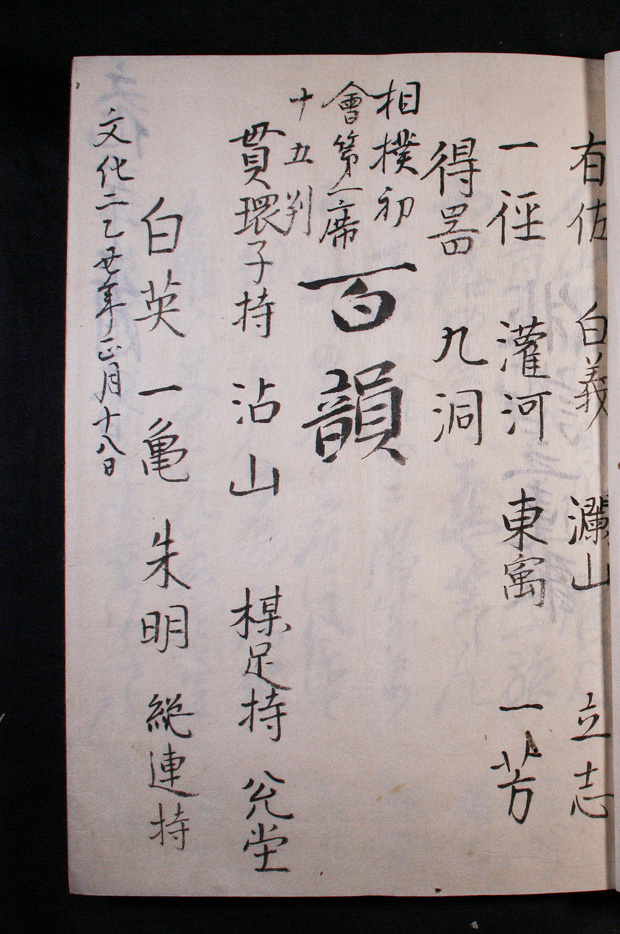 有佐 白義 瀾山 立志
一徑 灌河 東寓 一芳
得器 九洞
相撲初
會第一席
十五判
百韻
貫環子持 沾山 楳足持 公堂
白英 一亀 朱明 総連持
文化二乙丑年正月十八日